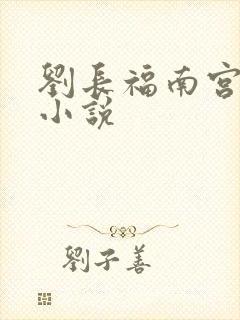 劉長福南宮
小說
劉子善